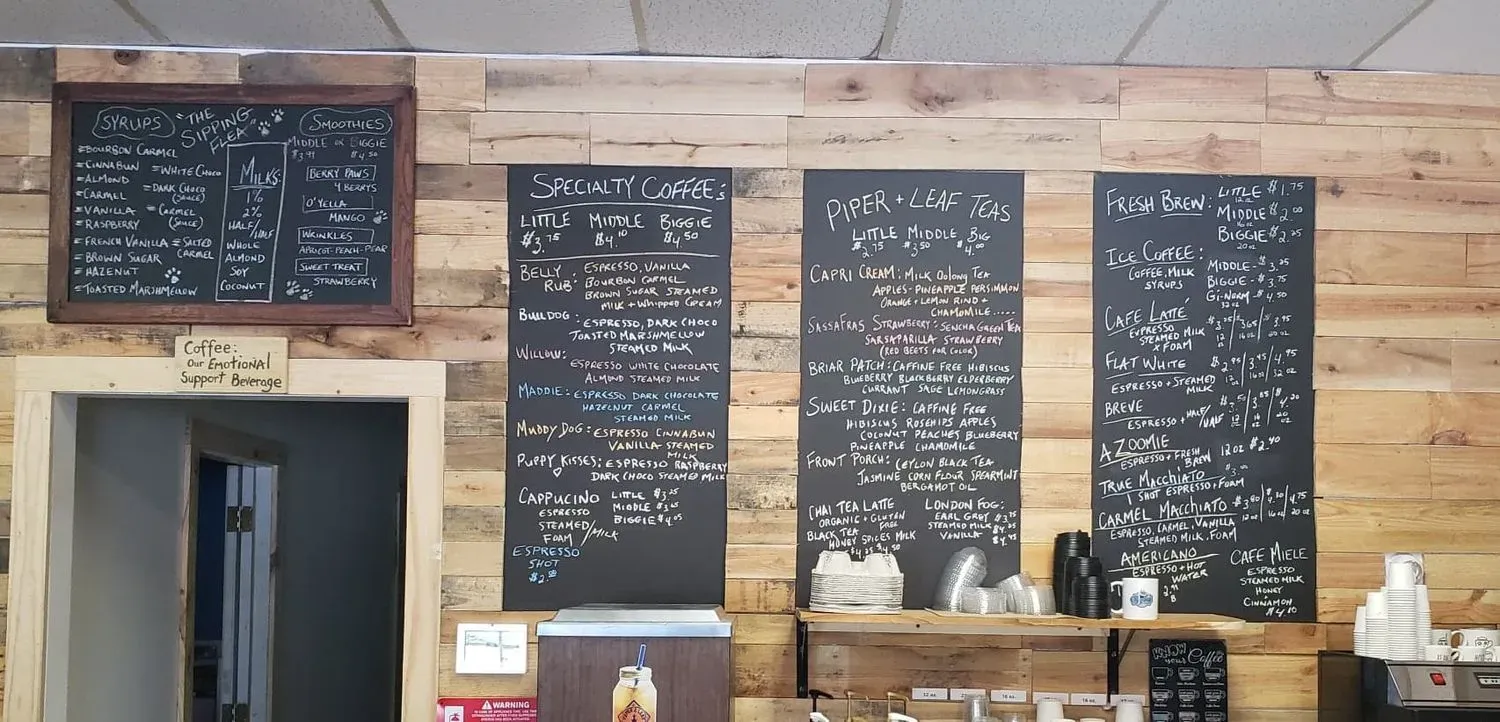 SYRUPS
"THE
SIPPING
FLEA"
=BOURBON CARMEL
=CINNABUN
=WHITE CHOCO
=ALMOND
=DARK CHOCO
(SAUCE)
=CARMEL
=VANILLA
=CARMEL
(SAUCE)
=RASPBERRY
=FRENCH VANILLA
=SALTED
CARMEL
=BROWN SUGAR
=HAZENUT
=TOASTED MARSHMELLOW
MILKS:
1%
2%
HALF/
HALF
WHOLE
ALMOND
SOY
COCONUT
SMOOTHIES
MIDDLE OR BIGGIE
$3.99 $4.50
BERRY PAWS
4 BERRYS
O'YELLA
MANGO
WRINKLES
APRICOT-PEACH-PEAR
SWEET TREAT
STRAWBERRY
Coffee:
Our EMOTIONAL
Support Beverage
SPECIALTY COFFEE:s
LITTLE MIDDLE BIGGIE
$3.75 $4.10 $4.50
BELLY RUB: ESPRESSO, VANILLA
BOURBON CARMEL
BROWN SUGAR STEAMED
MILK + WHIPPED CREAM
BULLDOG:
ESPRESSO, DARK CHOCO
TOASTED MARSHMELLOW
STEAMED MILK
WILLOW:
ESPRESSO WHITE CHOCOLATE
ALMOND STEAMED MILK
MADDIE: ESPRESSO DARK CHOCOLATE
HAZELNUT CARMEL
STEAMED MILK
MUDDY DOG: ESPRESSO CINNABUN
VANILLA-STEAMED
MILK
PUPPY KISSES: ESPRESSO RASPBERRY
DARK CHOCO STEAMED MILK
CAPPUCINO
ESPRESSO
STEAMED
FOAM/MILK
LITTLE $3.25
MIDDLE $3.65
BIGGIE $4.05
ESPRESSO
SHOT
$2.00
PIPER + LEAF TEAS
LITTLE MIDDLE BIG
$2.75 $3.50 $4.00
CAPRI CREAM: MILK OOLONG TEA
APPLES-PINEAPPLE PERSIMMON
ORANGE + LEMON RIND +
CHAMOMILE.....
SASSAFRAS STRAWBERRY: SENCHA GREEN TEA
SARSAPARILLA STRAWBERRY
(RED BEETS FOR COLOR)
BRIAR PATCH: CAFFINE FREE HIBISCUS
BLUEBERRY BLACKBERRY ELDERBERRY
CURRANT SAGE LEMONGRASS
SWEET DIXIE: CAFFINE FREE
HIBISCUS ROSEHIPS APPLES
COCONUT PEACHES BLUEBERRY
PINEAPPLE CHAMOMILE
FRONT PORCH: CEYLON BLACK TEA
JASMINE CORN FLOUR SPEARMINT
BERGAMOT OIL
CHAI TEA LATTE
ORGANIC + GLUTEN
FREE
BLACK TEA
HONEY SPICES MILK
$4.25 $4.50
LONDON FOG:
EARL GREY $3.75
STEAMED MILK $4.25
VANILLA $4.45
FRESH BREW: LITTLE $1.75
12 oz
MIDDLE $2.00
16 oz
BIGGIE $2.25
20 oz
ICE COFFEE:
COFFEE, MILK
SYRUPS
MIDDLE-$3.25
BIGGIE-$3.75
GI-NORM $4.50
32 oz
CAFE LATTÉ
EXPRESSO
STEAMED MILK
X FOAM
$3.25/3.65/3.95
12 oz 16 oz 20 oz
FLAT WHITE
ESPRESSO + STEAMED
MILK
$2.95/3.95/4.95
12 oz 16 oz 32 oz
BREVE
ESPRESSO + HALF/
HALF
$3.50/3.85/4.20
12 oz 16 oz 20 oz
A ZOOMIE
ESPRESSO + FRESH
BREW
12 oz $2.40
TRUE MACCHIATO $3.00
1 SHOT ESPRESSO + FOAM
CARMEL MACCHIATO $3.80/4.30/4.75
12 oz 16 oz 20 oz
ESPRESSO, CARMEL, VANILLA
STEAMED MILK, FOAM
AMERICANO
ESPRESSO + HOT
WATER
CAFE MIELE
ESPRESSO
STEAMED MILK
HONEY
CINNAMON
$4.10
WARNING
KNOW
YOUR Coffee
12 oz.
16 oz.
16 oz.